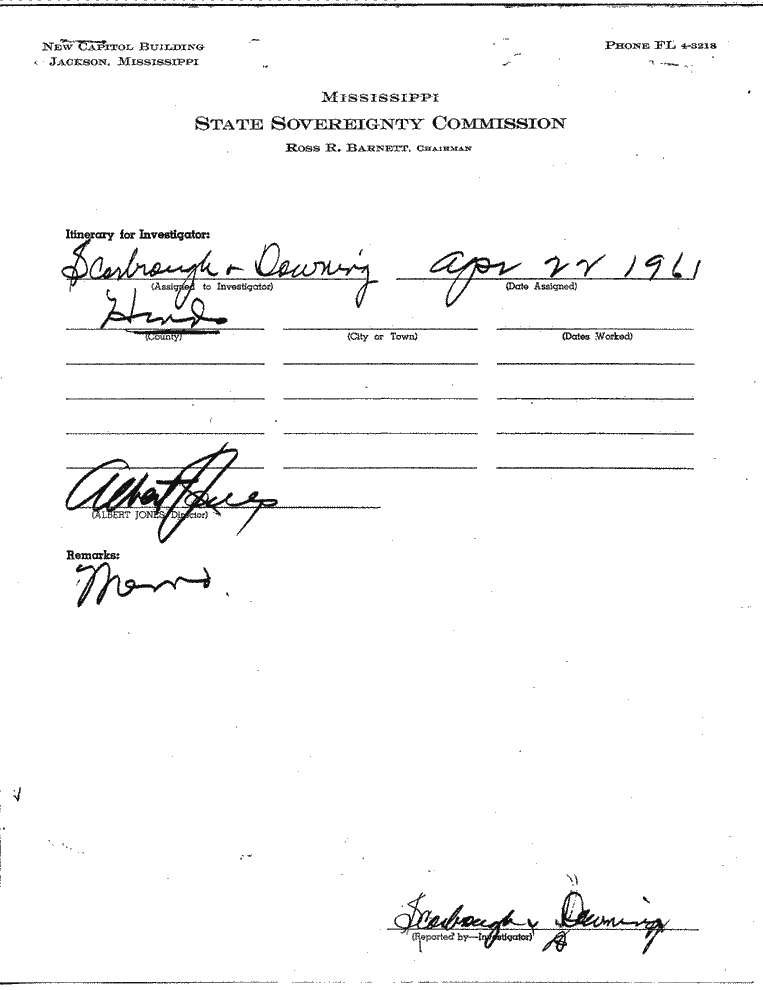 NEW CAPITOL BUILDING
JACKSON, MISSISSIPPI
PHONE FL 4-3218
MISSISSIPPI
STATE SOVEREIGNTY COMMISSION
ROSS R. BARNETT, CHAIRMAN
Itinerary for Investigator:
Scarbrough & Downing Apr 22 1961
(Assigned to Investigator) (Date Assigned)
Hinds
(County) (City or Town) (Dates Worked)
Albert Jones
(ALBERT JONES, Director)
Remarks:
Memo.
Scarbrough & Downing
(Reported by—Investigator)